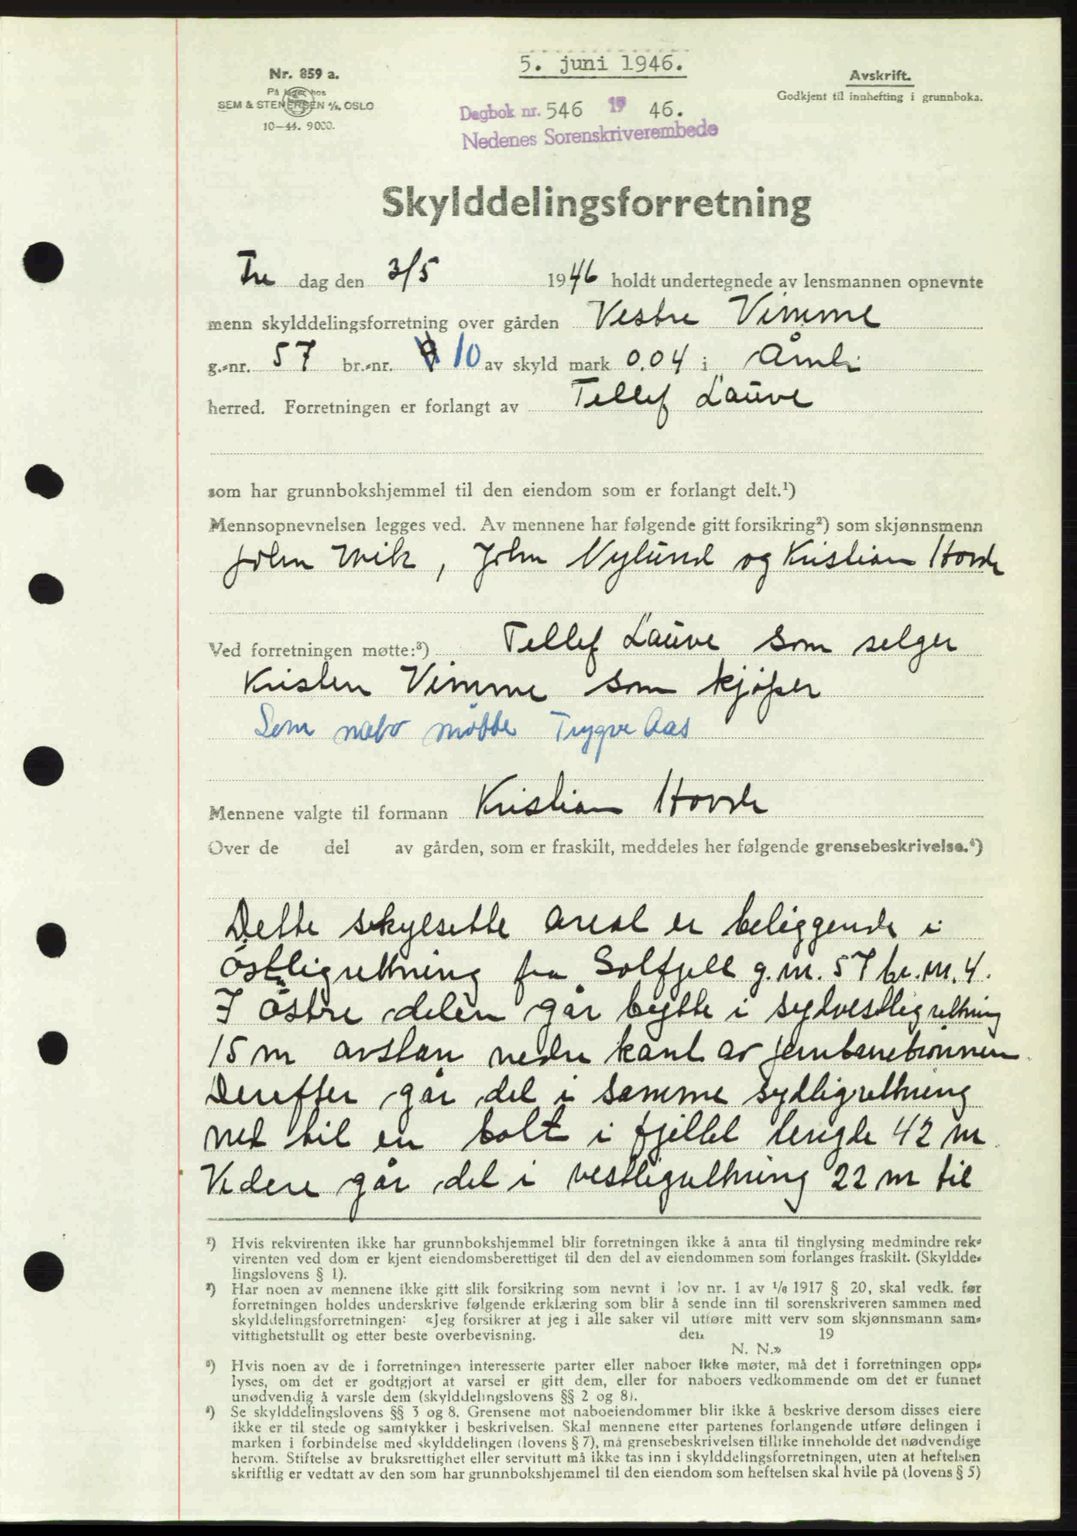 5. juni 1946.
Nr. 859 a.
På lager hos
SEM & STENERSEN A/S, OSLO
10-44. 9000.
Avskrift.
Godkjent til innhefting i grunnboka.
Dagbok nr. 546 19 46.
Nedenes Sorenskriverembede
Skylddelingsforretning
Fre dag den 3/5 1946 holdt undertegnede av lensmannen opnevnte
menn skylddelingsforretning over gården Vestre Vimme
g.-nr. 57 br.-nr. 10 av skyld mark 0,04 i Åmli
herred. Forretningen er forlangt av Tellef Lauve
som har grunnbokshjemmel til den eiendom som er forlangt delt.¹)
Mennsopnevnelsen legges ved. Av mennene har følgende gitt forsikring²) som skjønnsmenn
John Wik, John Nylund og Kristian Hovde
Ved forretningen møtte:³) Tellef Lauve som selger
Kristen Vimme som kjøper
Som nabo møtte Trygve Aas
Mennene valgte til formann Kristian Hovde
Over de del av gården, som er fraskilt, meddeles her følgende grensebeskrivelse.⁴)
Dette skylsette areal er beliggende i
östligrettning fra Solfjell g.nr. 57 br.nr. 4.
I östre delen går bytte i sydvestligrettning
15 m avstan nedre kant av jernbanebrönnen.
Derefter går del i samme sydligrettning
ned til en bolt i fjellet lengde 42 m
Videre går del i vestligrettning 22 m til
¹) Hvis rekvirenten ikke har grunnbokshjemmel blir forretningen ikke å anta til tinglysing medmindre rek-
virenten ved dom er kjent eiendomsberettiget til den del av eiendommen som forlanges fraskilt. (Skyldde-
lingslovens § 1).
²) Har noen av mennene ikke gitt slik forsikring som nevnt i lov nr. 1 av 1/6 1917 § 20, skal vedk. før
forretningen holdes underskrive følgende erklæring som blir å sende inn til sorenskriveren sammen med
skylddelingsforretningen: «Jeg forsikrer at jeg i alle saker vil utføre mitt verv som skjønnsmann sam-
vittighetsfullt og etter beste overbevisning. den 19
N. N.»
³) Hvis noen av de i forretningen interesserte parter eller naboer ikke møter, må det i forretningen opp-
lyses, om det er godtgjort at varsel er gitt dem, eller for naboers vedkommende om det er funnet
unødvendig å varsle dem (skylddelingslovens §§ 2 og 8).
⁴) Se skylddelingslovens §§ 3 og 8. Grensene mot naboeiendommer blir ikke å beskrive dersom disses eiere
ikke er til stede og samtykker i beskrivelsen. Skal mennene etter partenes forlangende utføre delingen i
marken i forbindelse med skylddelingen (lovens § 7), må grensebeskrivelsen tillike inneholde det nødvendige
herom. Stiftelse av bruksrettighet eller servitutt må ikke tas inn i skylddelingsforretningen, uten at heftelsen
skriftlig er vedtatt av den som har grunnbokshjemmel til den eiendom som heftelsen skal hvile på (lovens § 5)